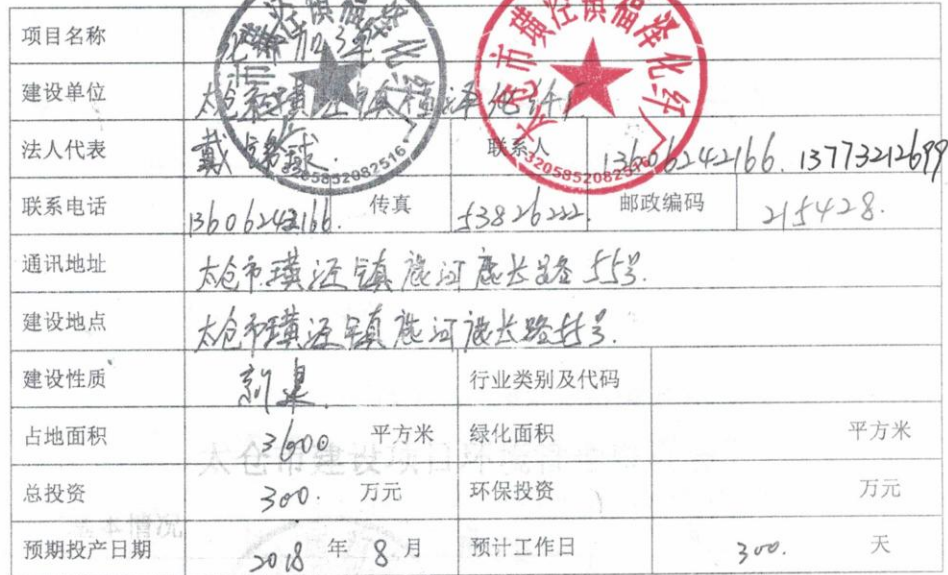 项目名称 化纤加弹
建设单位 太仓市璜泾镇福泽化纤厂
法人代表 戴 球 联系人 13606242166. 13773212699
联系电话 13606242166. 传真 53826222. 邮政编码 215428.
通讯地址 太仓市璜泾镇鹿河鹿长路55号.
建设地点 太仓市璜泾镇鹿河鹿长路55号.
建设性质 新建 行业类别及代码
占地面积 3600 平方米 绿化面积 平方米
总投资 300. 万元 环保投资 万元
预期投产日期 2018 年 8 月 预计工作日 300. 天
太仓市璜泾镇福泽化纤厂
3205852082516
太仓市璜泾镇福泽化纤厂
3205852082516
太仓市建设项目环境
基本情况